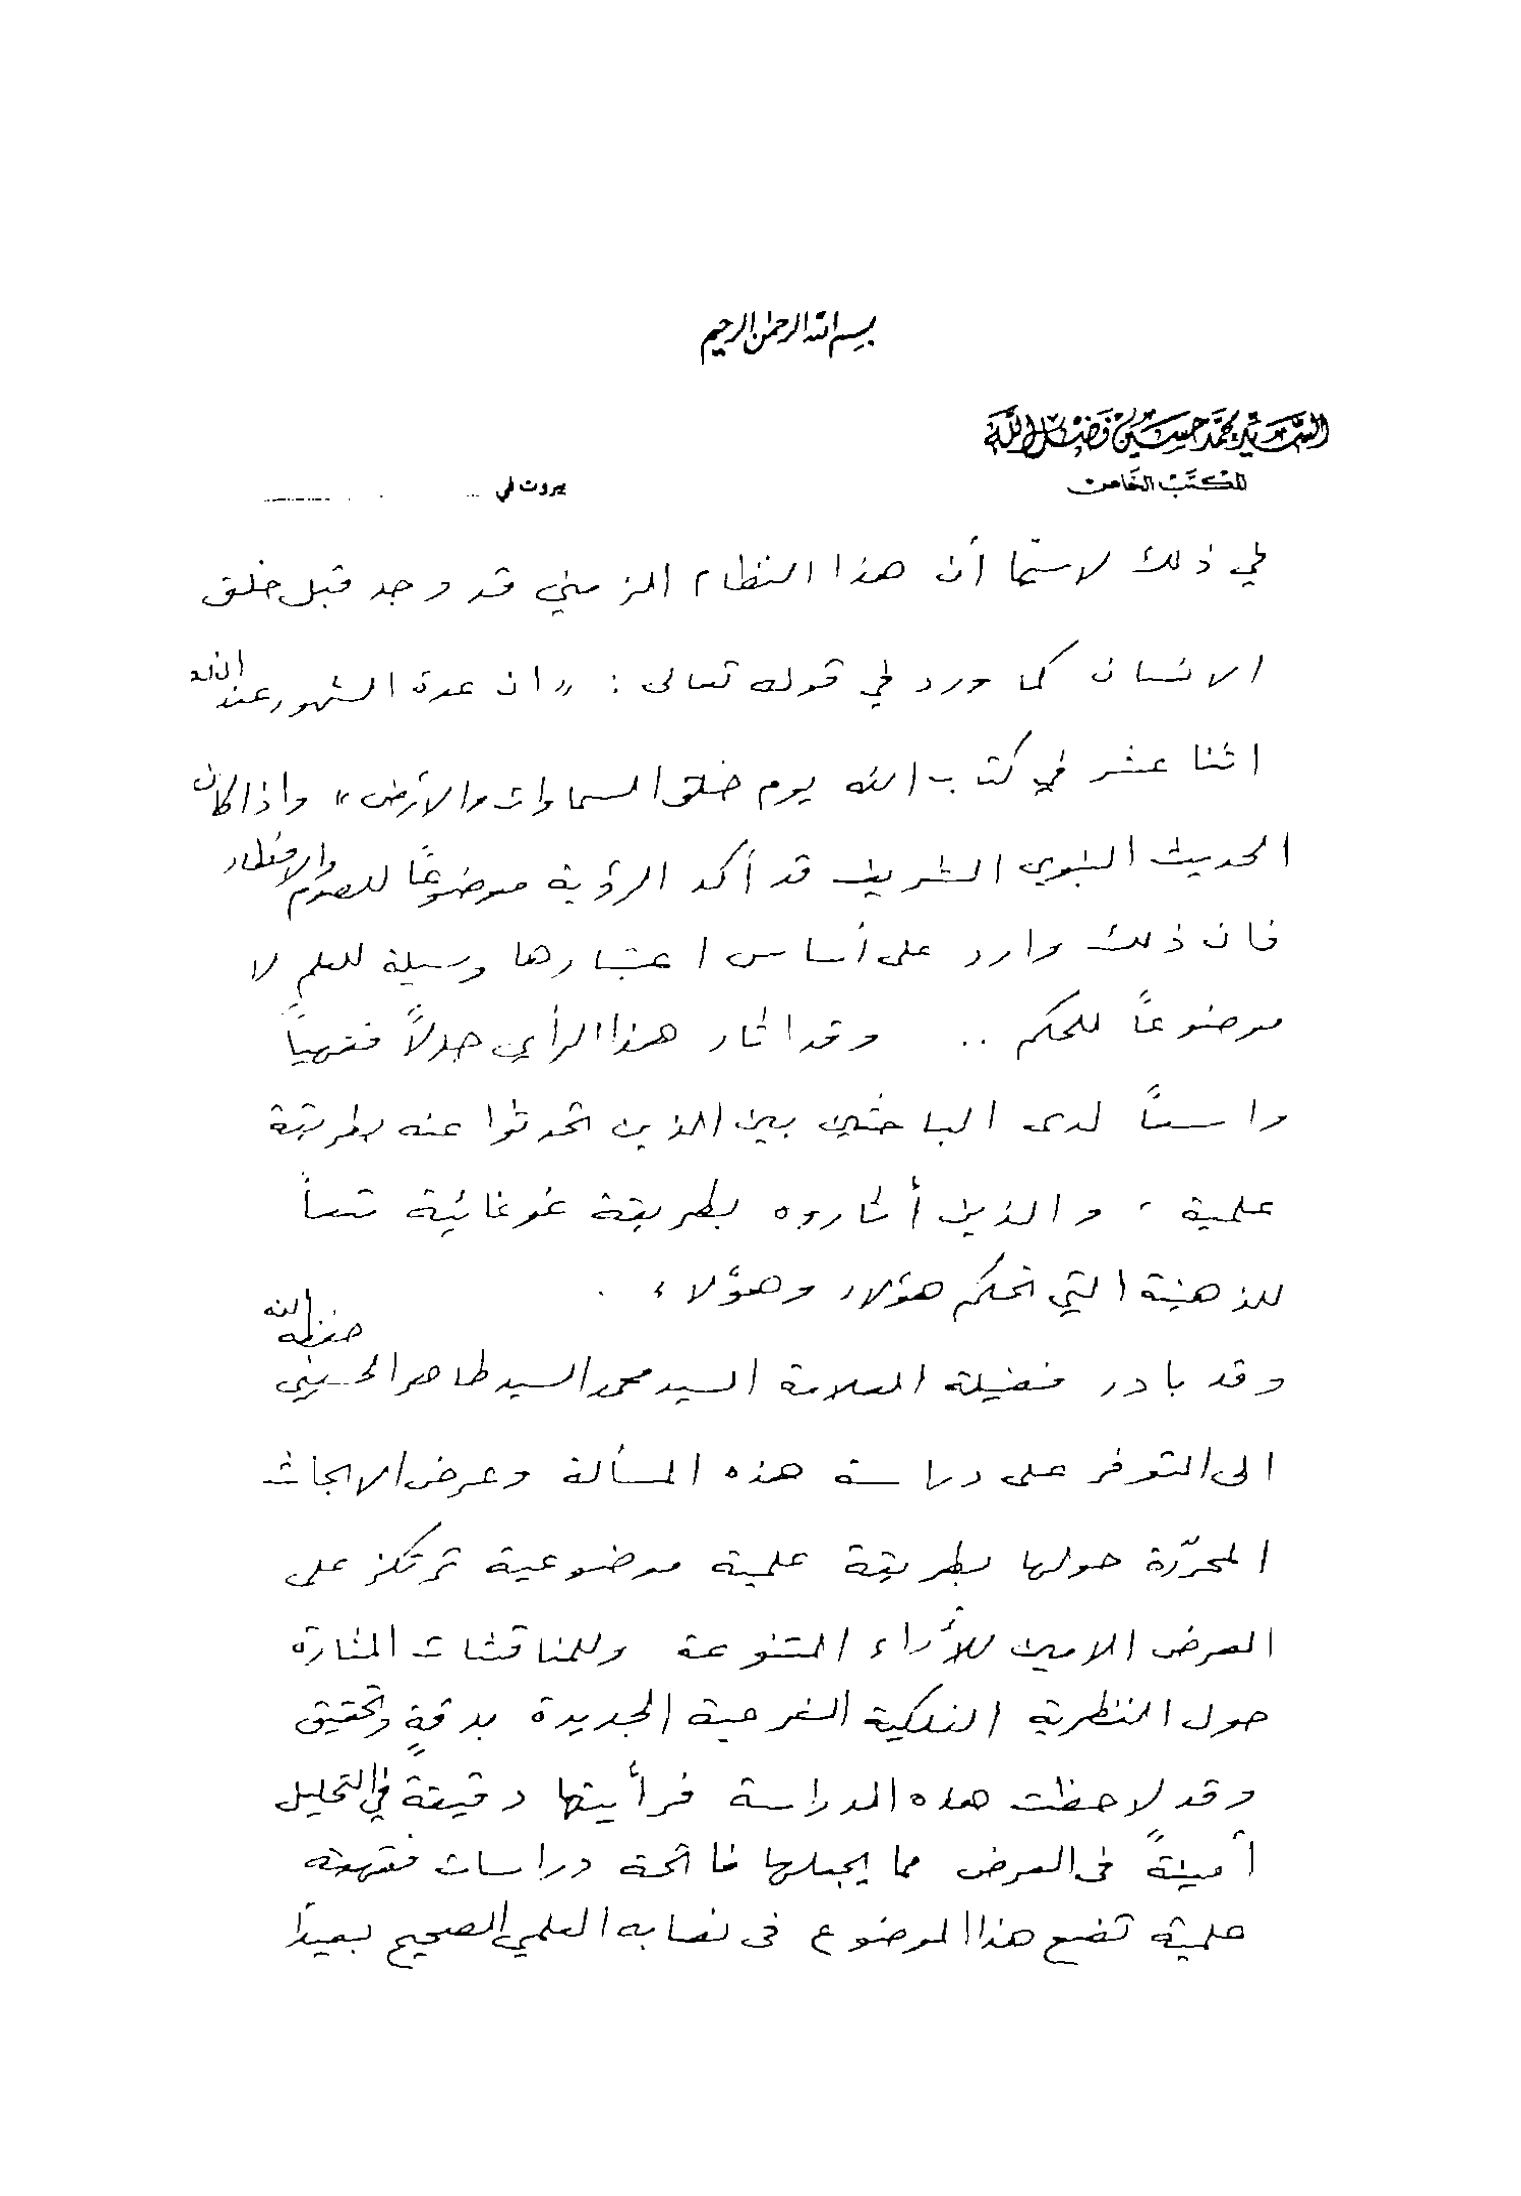 بسم الله الرحمن الرحيم
السيد محمد حسين فضل الله
المكتب الخاص
بيروت في
في ذلك لاسيّما أن هذا النظام الزمني قد وجد قبل خلق
الانسان كما ورد في قوله تعالى : » ان عدة الشهور عند الله
اثنا عشر في كتاب الله يوم خلق السماوات والأرض « واذا كان
الحديث النبوي الشريف قد أكد الرؤية موضوعاً للصوم والافطار
فان ذلك وارد على أساس اعتبارها وسيلة للعلم لا
موضوعاً للحكم .. وقد اثار هذا الرأي جدلاً فقهياً
واسعاً لدى الباحثين بين الذين تحدثوا عنه بطريقة
علمية ، والذين أثاروه بطريقة غوغائية تبعاً
للذهنية التي تحكم هؤلاء وهؤلاء .
وقد بادر فضيلة العلامة السيد محمد السيد طاهر الحسيني حفظه الله
الى التوفر على دراسة هذه المسألة وعرض الابحاث
المحرّرة حولها بطريقة علمية موضوعية ترتكز على
العرض الامين للأراء المتنوعة وللمناقشات المثارة
حول النظرية الفلكية الشرعية الجديدة بدقةٍ وتحقيق
وقد لاحظت هذه الدراسة فرأيتها دقيقةً في التحليل
أمينةً في العرض مما يجعلها فاتحة دراسات فقهية
علمية تضع هذا الموضوع في نصابه العلمي الصحيح بعيداً